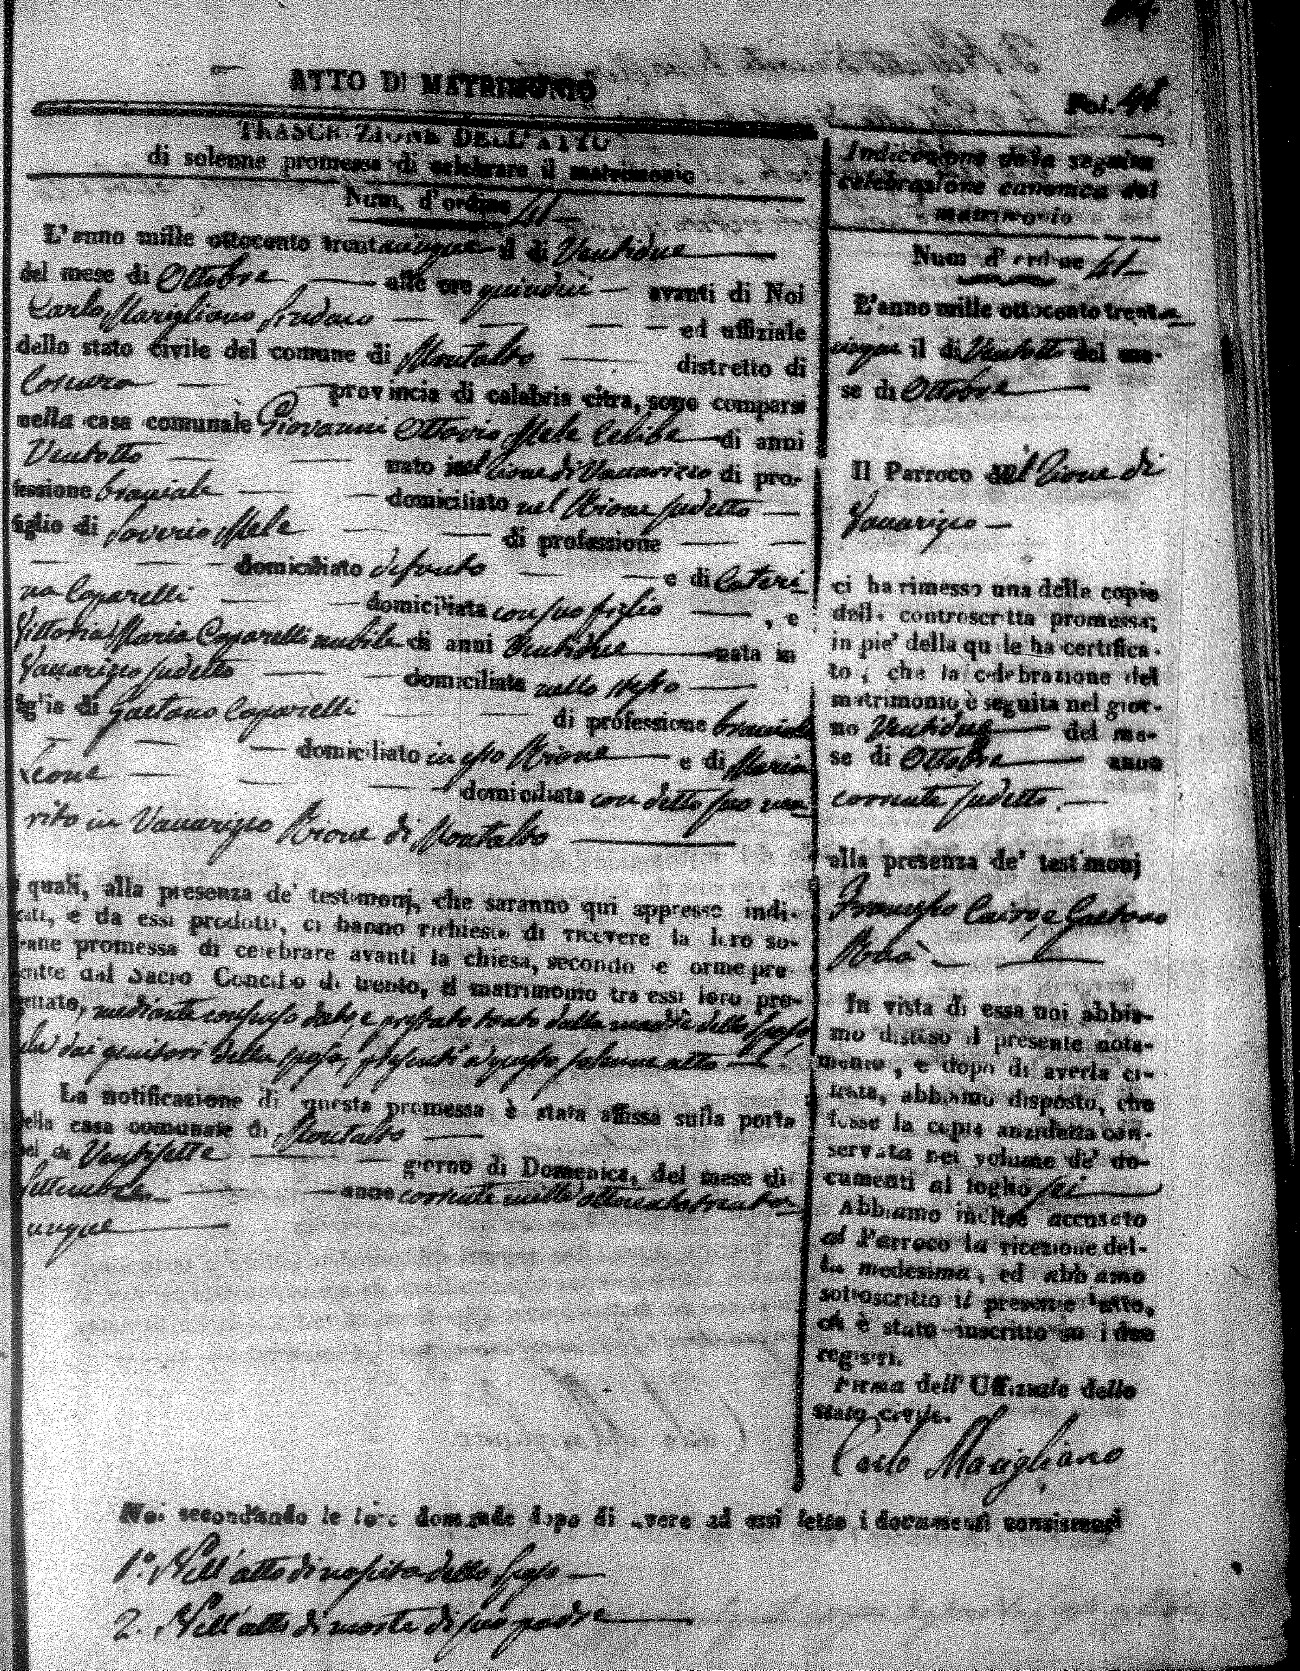 Fol. 41
ATTO DI MATRIMONIO
TRASCRIZIONE DELL'ATTO
di solenne promessa di celebrare il matrimonio
Num. d'ordine 41
L'anno mille ottocento trentacinque il dì Ventidue
del mese di Ottobre alle ore quindici avanti di Noi
Carlo Marigliano Sindaco ed uffiziale
dello stato civile del comune di Montalto distretto di
Cosenza provincia di calabria citra, sono comparsi
nella casa comunale Giovanni Ottavio Mele Celibe di anni
Ventotto nato in nel Rione di Vaccarizzo di pro-
fessione bracciale domiciliato nel Rione sudetto
figlio di Saverio Mele di professione
domiciliato defunto e di Cateri-
na Caparelli domiciliata con suo figlio , e
Vittoria Maria Caparelli nubile di anni Ventidue nata in
Vaccarizzo sudetto domiciliata nello stesso
figlia di Gaetano Caparelli di professione bracciale
domiciliato in esso Rione e di Maria
Leone domiciliata con detto suo ma-
rito in Vaccarizzo Rione di Montalto
i quali, alla presenza de' testimonj, che saranno qui appresso indi-
cati, e da essi prodotti, ci hanno richiesto di ricevere la loro so-
lenne promessa di celebrare avanti la chiesa, secondo le forme pre-
scritte dal Sacro Concilio di trento, il matrimonio tra essi loro pro-
gettato, mediante consenso dato, e prestato tanto dalla madre dello sposo,
che dai genitori della sposa, presenti a questo solenne atto
La notificazione di questa promessa è stata affissa sulla porta
della casa comunale di Montalto
nel dì Ventisette giorno di Domenica, del mese di
Settembre anno corrente mille ottocento trenta-
cinque
Indicazione della seguita
celebrazione canonica del
matrimonio
Num. d'ordine 41
L'anno mille ottocento trenta-
cinque il dì Ventotto del me-
se di Ottobre
Il Parroco del Rione di
Vaccarizzo
ci ha rimesso una delle copie
della controscritta promessa;
in piè della quale ha certifica-
to, che la celebrazione del
matrimonio è seguita nel gior-
no Ventidue del me-
se di Ottobre anno
corrente sudetto
alla presenza de' testimonj
Francesco Cairo, e Gaetano
Rosa
In vista di essa noi abbia-
mo disteso il presente nota-
mento, e dopo di averla ci-
frata, abbiamo disposto, che
fosse la copia anzidetta con-
servata nel volume de' do-
cumenti al foglio sei
Abbiamo inoltre accusato
al Parroco la ricezione del-
la medesima, ed abbiamo
sottoscritto il presente atto,
ch'è stato inscritto su i due
registri.
Firma dell' Uffiziale dello
stato civile.
Carlo Marigliano
Noi secondando le loro domande dopo di avere ad essi letto i documenti consistenti
1.° Nell'atto di nascita dello sposo
2. Nell'atto di morte di suo padre